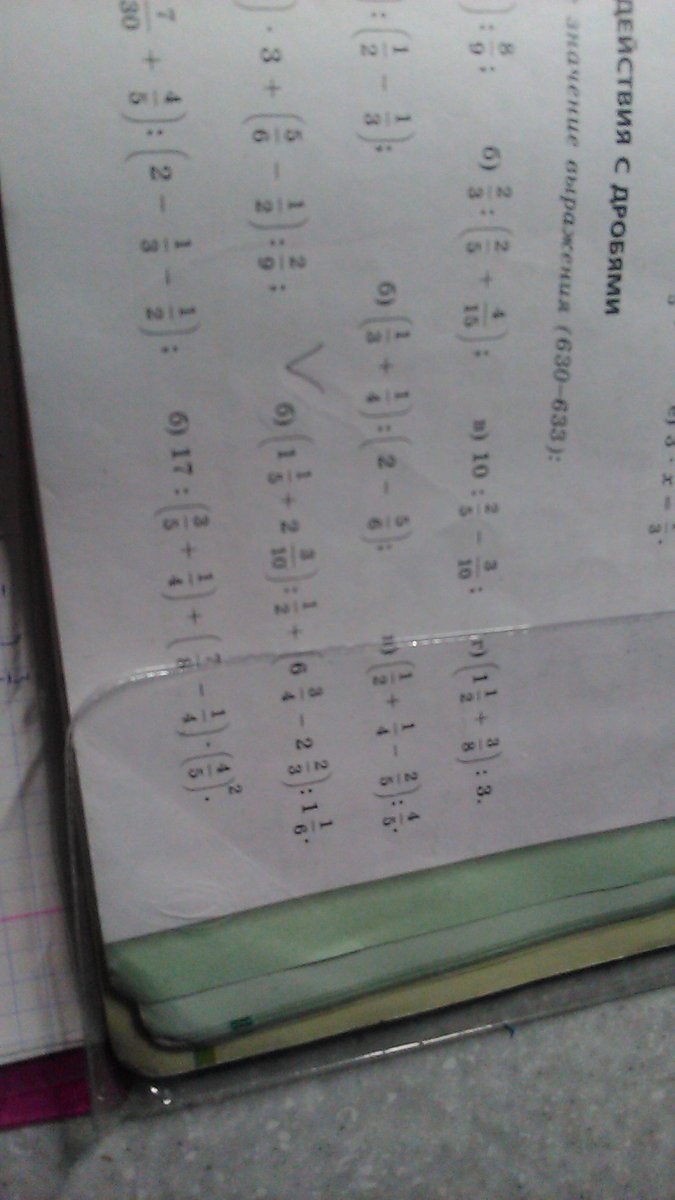 x = 
ДЕЙСТВИЯ С ДРОБЯМИ
значение выражения (630—633):
) : 8/9; б) 2/3 : (2/5 + 4/15); в) 10 : 2/5 − 3/10; г) (1 1/2 + 3/8) : 3.
) : (1/2 − 1/3); б) (1/3 + 1/4) : (2 − 5/6); в) (1/2 + 1/4 − 2/5) : 4/5.
) · 3 + (5/6 − 1/2) : 2/9; б) (1 1/5 + 2 3/10) : 1/2 + (6 3/4 − 2 2/3) : 1 1/6.
7/30 + 4/5) : (2 − 1/3 − 1/2); б) 17 : (3/5 + 1/4) + (7/8 − 1/4) · (4/5)².